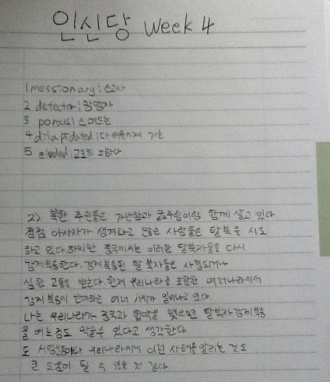 인신당 Week 4
1 messionary | 선교사
2 detector |
3 porous | 스며드는
4 dilapidated | 다 허물어져 가는
5 eluded | 교묘히 피하다
2) 북한 주민들은 가난함과 굶주림이랑 함께 살고 있다
점점 아사자가 생겨나고 많은 사람들은 탈북을 시도
하고 있다. 하지만 중국에서는 이러한 탈북자들을 다시
강제북송한다. 강제 북송된 탈북자들은 사형되거나
심한 고통을 받는다. 현재 우리나라를 포함한 여러나라에서
강제 북송이 반대하는 여러 시위가 일어나고 있다.
나는 우리나라가 중국과 협약을 맺으면 탈북자 강제북송
을 어느정도 막을수 있다고 생각한다.
또 우리나라에게 이런 사태를 알리는 것도
큰 도움이 될 수 있을 것 같다.